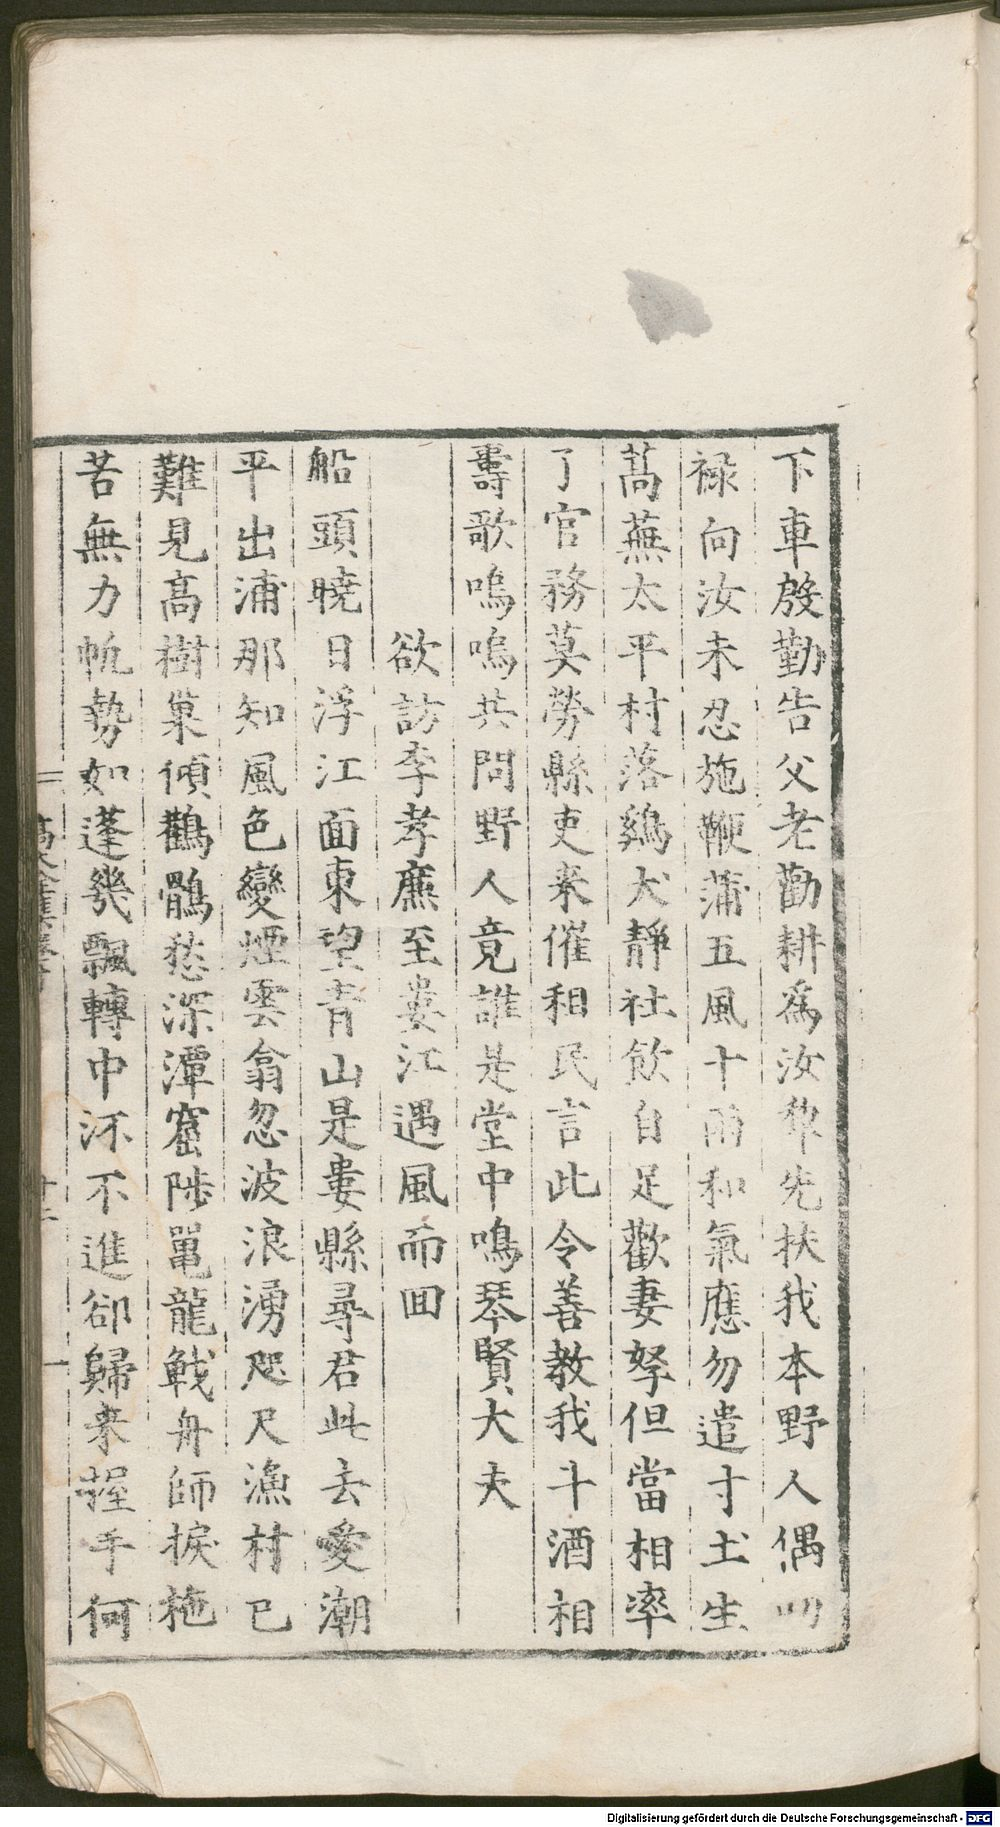 下車慇勤告父老勸耕爲汝犂先扶我本野人偶叨
祿向汝未忍施鞭蒲五風十雨和氣應勿遣寸土生
萵蕪太平村落鷄犬靜社飲自足歡妻孥但當相率
了官務莫勞縣吏來催租民言此令善教我斗酒相
壽歌嗚嗚共問野人竟誰是堂中鳴琴賢大夫
欲訪李孝廉至婁江遇風而囬
船頭曉日浮江面東望青山是婁縣尋君此去愛潮
平出浦那知風色變煙雲翕忽波浪湧咫尺漁村已
難見髙樹巢傾鸛鶻愁深潭窟陟鼍龍戰舟師捩柂
苦無力帆勢如蓬幾飄轉中沠不進郤歸来握手何
Digitalisierung gefördert durch die Deutsche Forschungsgemeinschaft - DFG